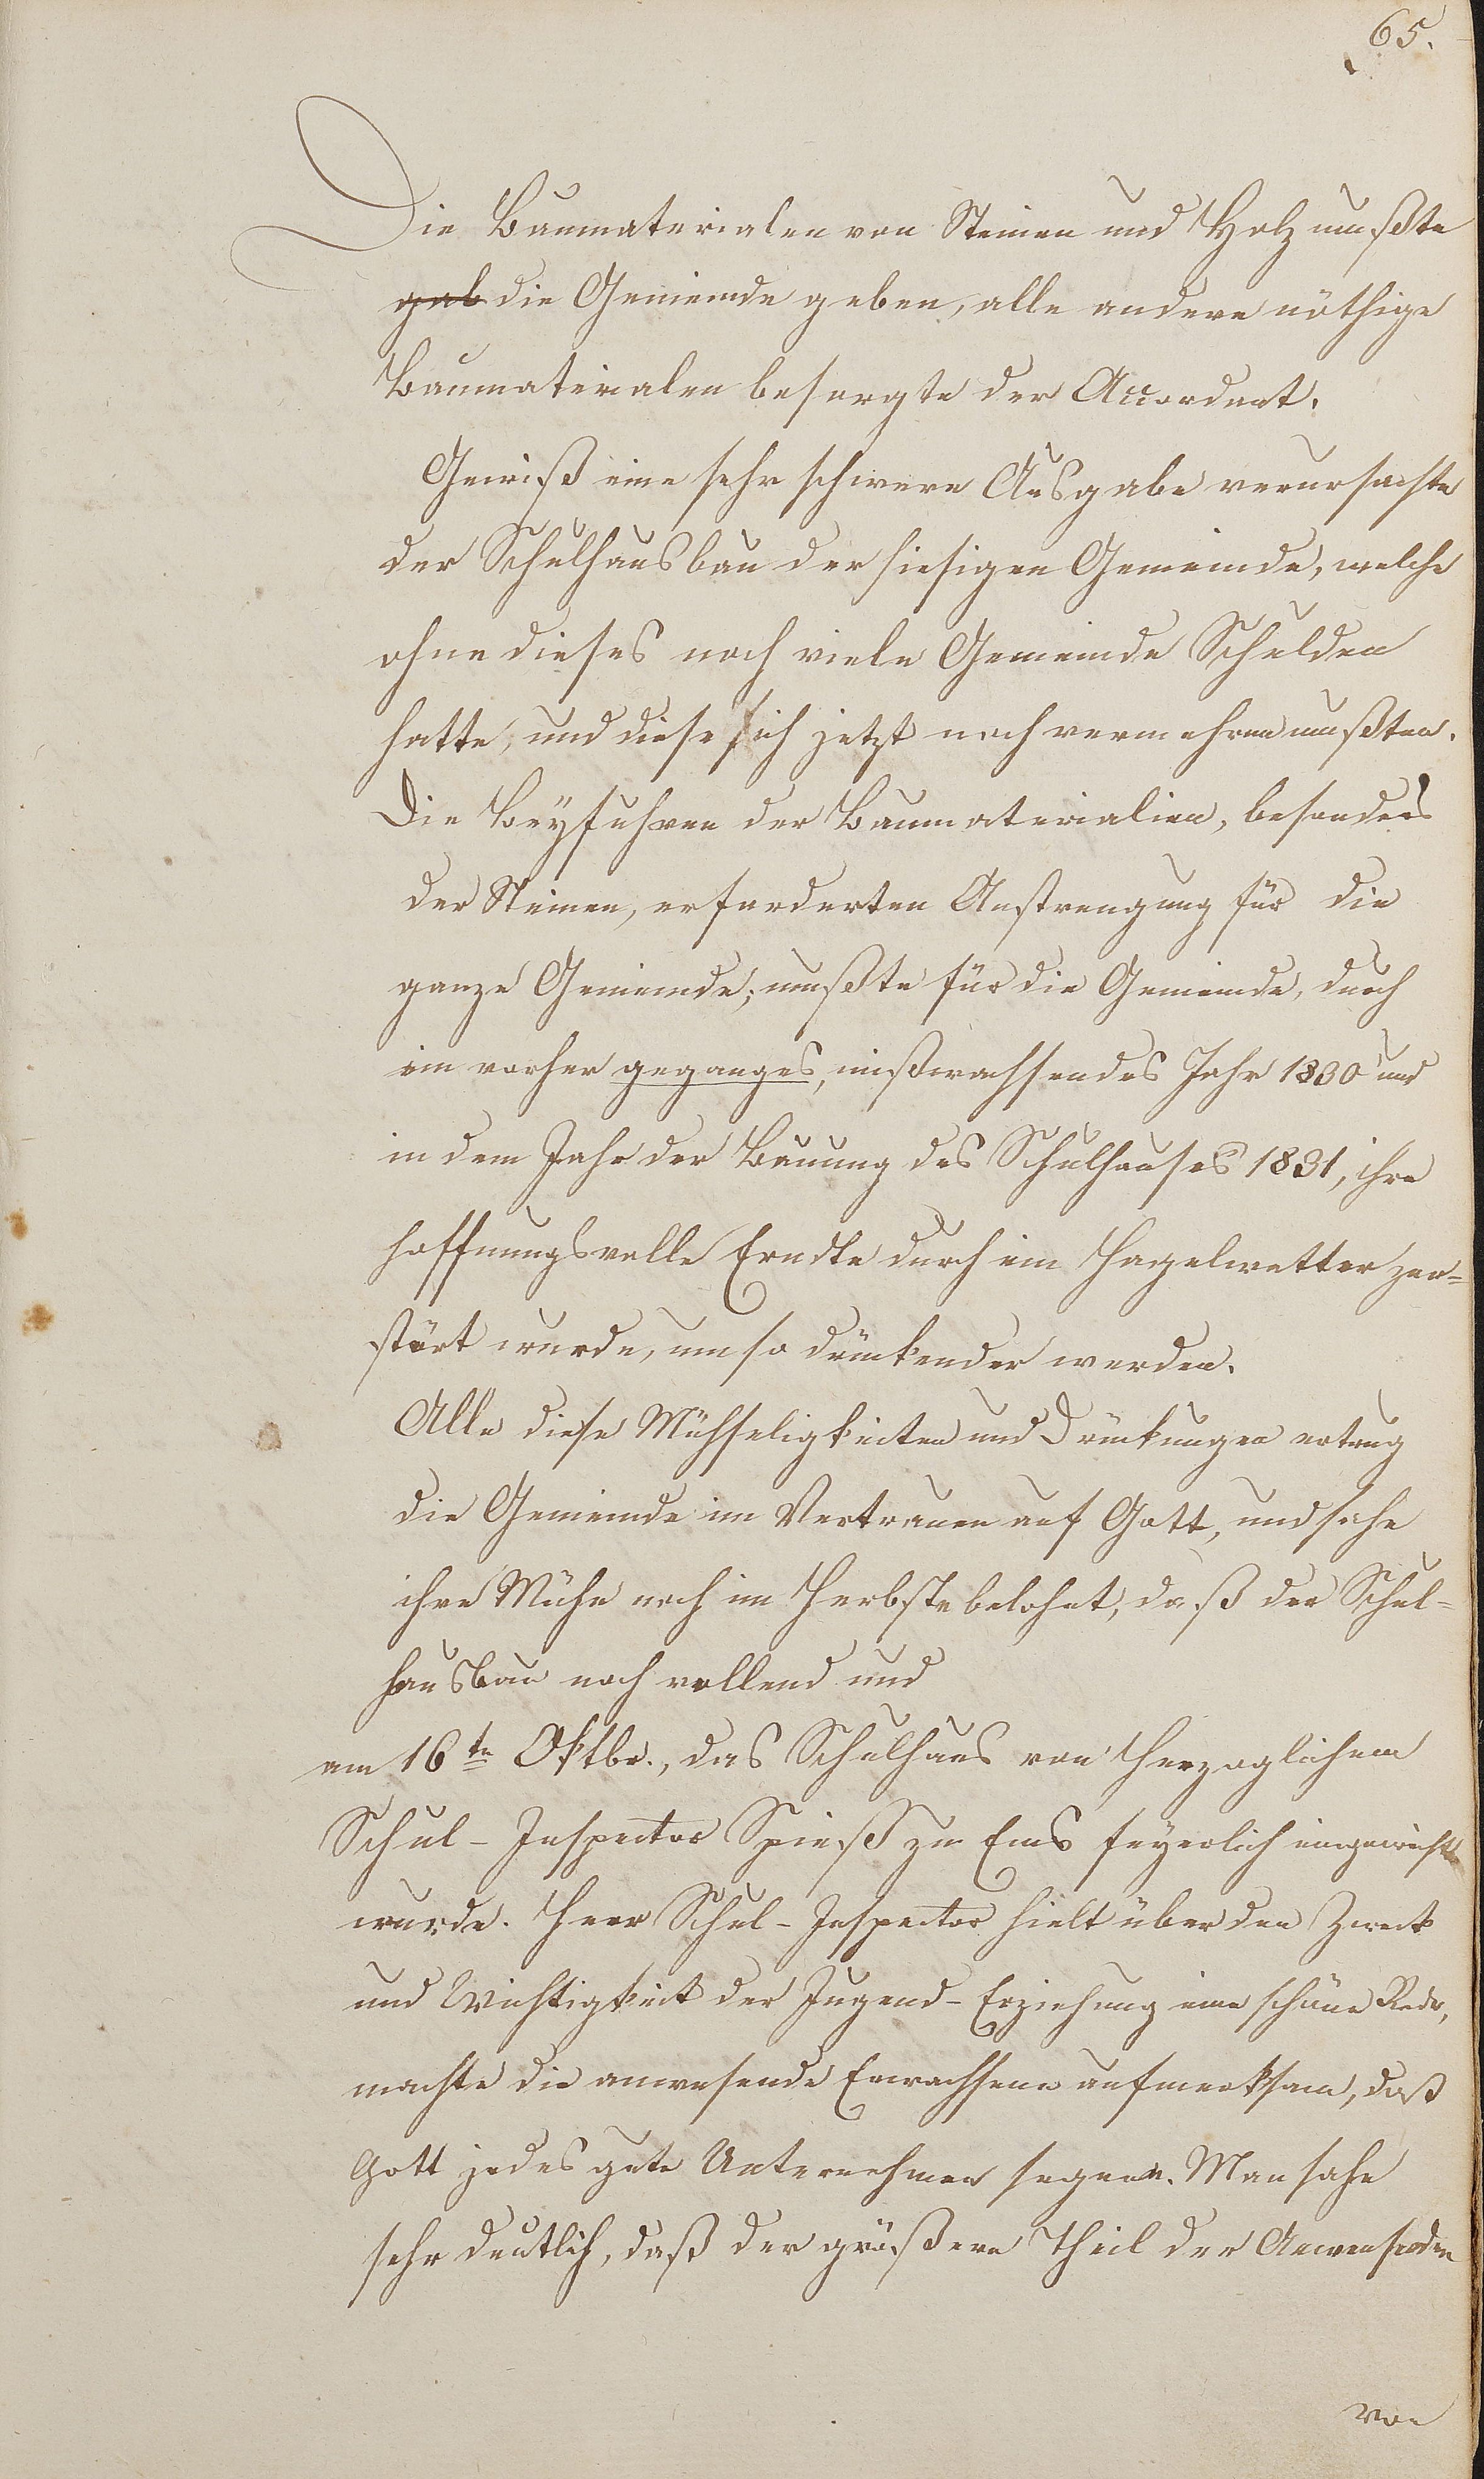 65.
Die Baumaterialen von Steinen und Holz mußte
gab die Gemeinde geben, alle andere nöthige
Baumaterialen besorgte der Accordant.
Gewiß eine sehr schwere Ausgabe verursachte
der Schulhausbau der hiesigen Gemeinde, welche
ohne dieses noch viele Gemeinde Schulden
hatte, und diese sich jetzt noch vermehren mußten.
Die Beyfuhren der Baumaterialien, besonders
der Steinen, erforderten Anstrengung für die
ganze Gemeinde; mußte für die Gemeinde, durch
ein vorher geganges, mißwachsendes Jahr 1830 und
in dem Jahr der Bauung des Schulhauses 1831, ihre
hoffnungsvolle Erndte durch ein Hagelwetter zer=
stört wurde, um so drückender werden.
Alle diese Mühseligkeiten und Drückungen ertrug
die Gemeinde im Vertrauen auf Gott, und sahe
ihre Mühe noch im Herbste belohnt, daß der Schul=
hausbau noch vollend und
am 16te Oktbr., das Schulhaus von Herzoglichem
Schul-Inspector Spieß zu Ems feyerlich eingeweiht
wurde. Herr Schul-Inspector hielt über den Zweck
und Wichtigkeit der Jugend-Erziehung eine schöne Rede,
machte die anwesende Erwachsene aufmerksam, daß
Gott jedes gute Unternehmen segne. Man sahe
sehr deutlich, daß der größere Theil der Anwesenden
von